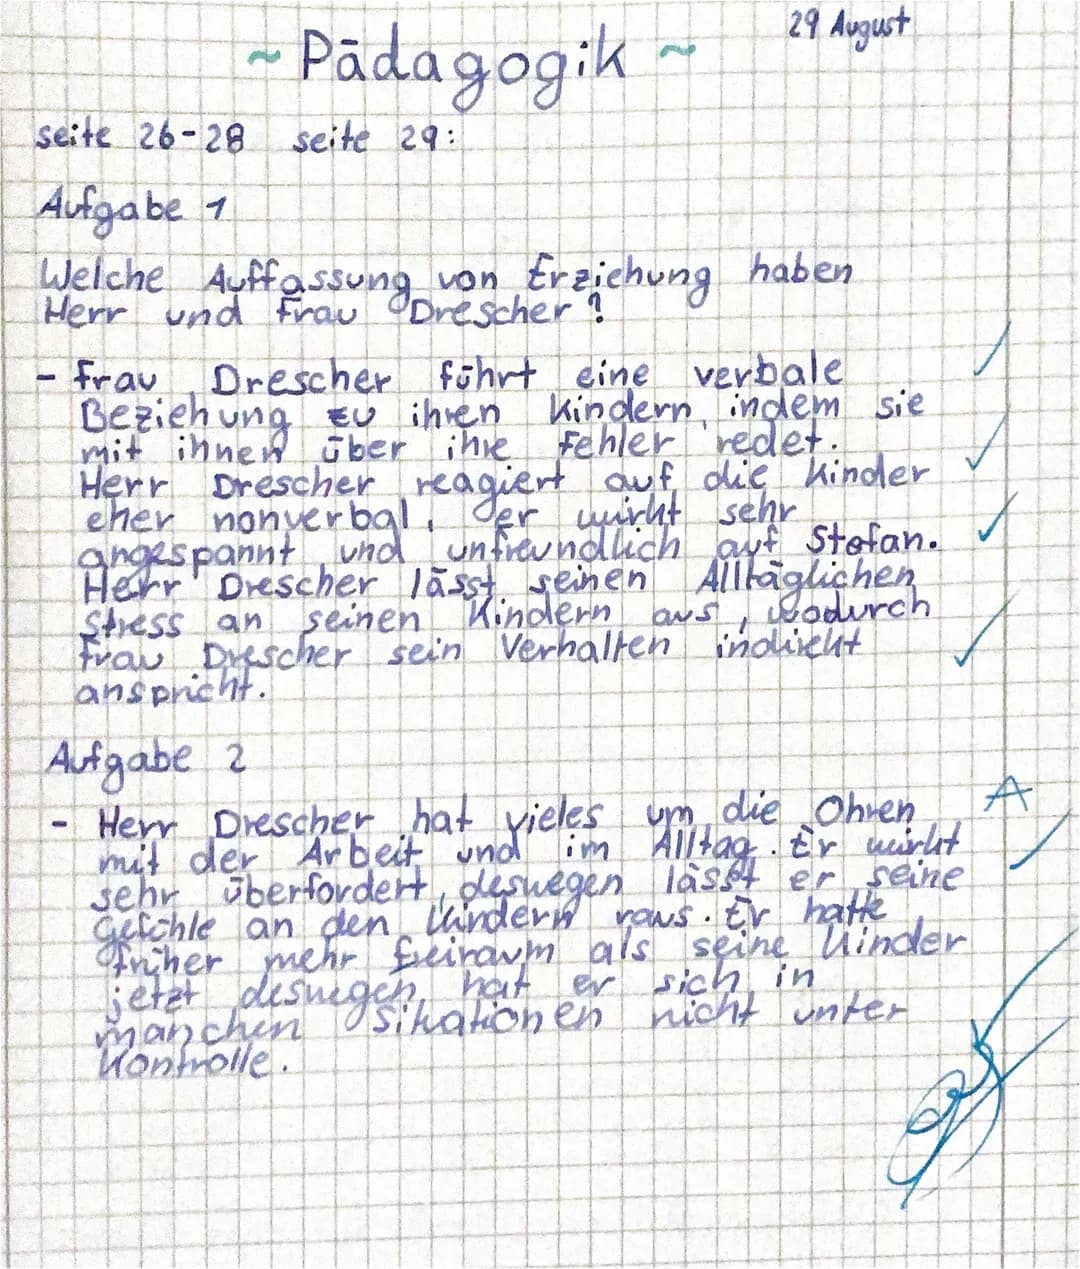 29 August
~ Pädagogik ~
seite 26-28 seite 29:
Aufgabe 1
Welche Auffassung von Erziehung haben
Herr und Frau Drescher?
- Frau Drescher führt eine verbale
Beziehung zu ihren Kindern, indem sie
mit ihnen über ihre Fehler redet.
Herr Drescher reagiert auf die Kinder
eher nonverbal, er wirkt sehr
angespannt und unfreundlich auf Stefan.
Herr Drescher lässt seinen Alltäglichen
Stress an seinen Kindern aus, wodurch
Frau Drescher sein Verhalten indirekt
anspricht.
Aufgabe 2
- Herr Drescher hat vieles um die Ohren
mit der Arbeit und im Alltag. Er wirkt
sehr überfordert, deswegen lässt er seine
Gefühle an den Kindern raus. Er hatte
früher mehr Freiraum als seine Kinder
jetzt deswegen hat er sich in
manchen Sitationen nicht unter
Kontrolle.
A